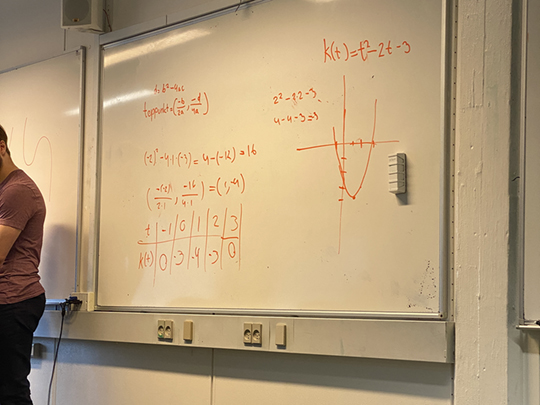 k(t) = t² - 2t - 3
d = b² - 4ac
toppunkt = (-b/2a, -d/4a)
2² - 2·2 - 3
4 - 4 - 3 = 3
(-2)² - 4·1·(-3) = 4 - (-12) = 16
(-(-2)/2·1, -16/4·1) = (1, -4)
t | -1 | 0 | 1 | 2 | 3
k(t) | 0 | -3 | -4 | -3 | 0